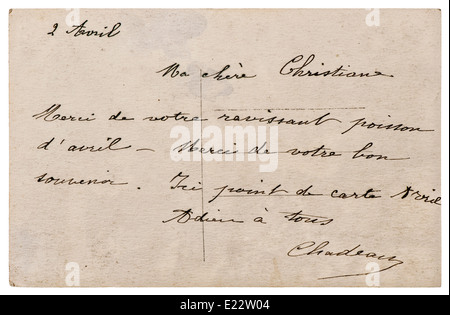 2 Avril
Ma chère Christiane
Merci de votre ravissant poisson
d'avril – Merci de votre bon
souvenir. Ici point de carte Avril
Adieu à tous
Chadeau
alamy stock photo
E22W04